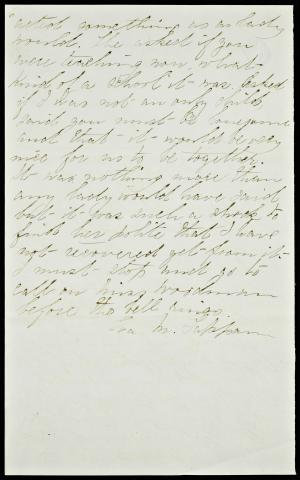 acted something as a lady
would. She asked if you
were teaching now, what
kind of a school it was. Asked
if I was not an only child
said you must be lonesome
and that it would be very
nice for us to be together.
It was nothing more than
any lady would have said,
but it was such a shock to
find her polite that I have
not recovered yet from it.
I must stop and go to
call on Miss Woodman
before the bell rings.
Eva M. Tappan